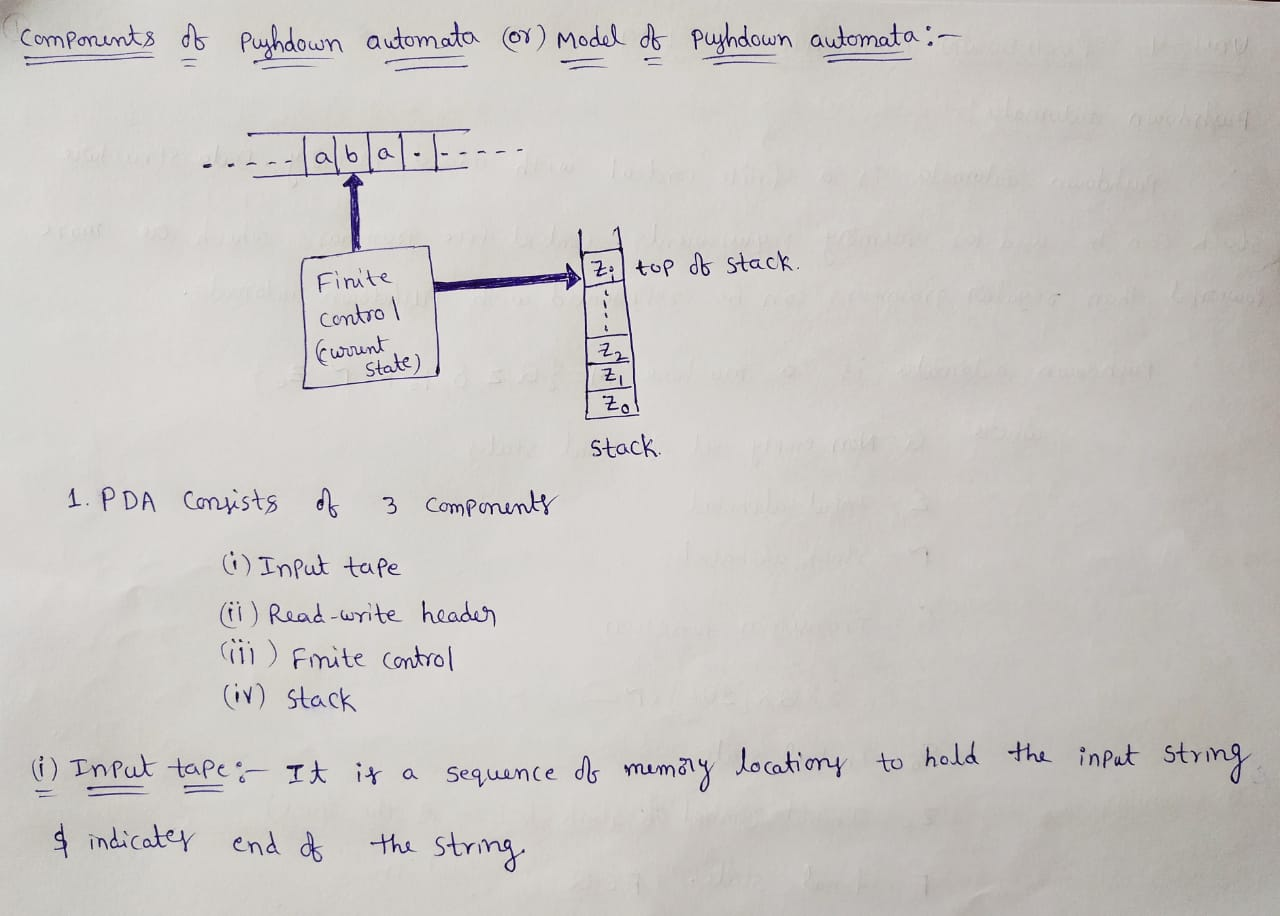 Components of Pushdown automata (or) Model of Pushdown automata:-
a b a .
Finite
control
(current
state)
Zi top of stack.
Z2
Z1
Z0
stack.
1. PDA Consists of 3 components
(i) Input tape
(ii) Read-write header
(iii) Finite control
(iv) Stack
(i) Input tape:- It is a sequence of memory locations to hold the input string
$ indicates end of the string.